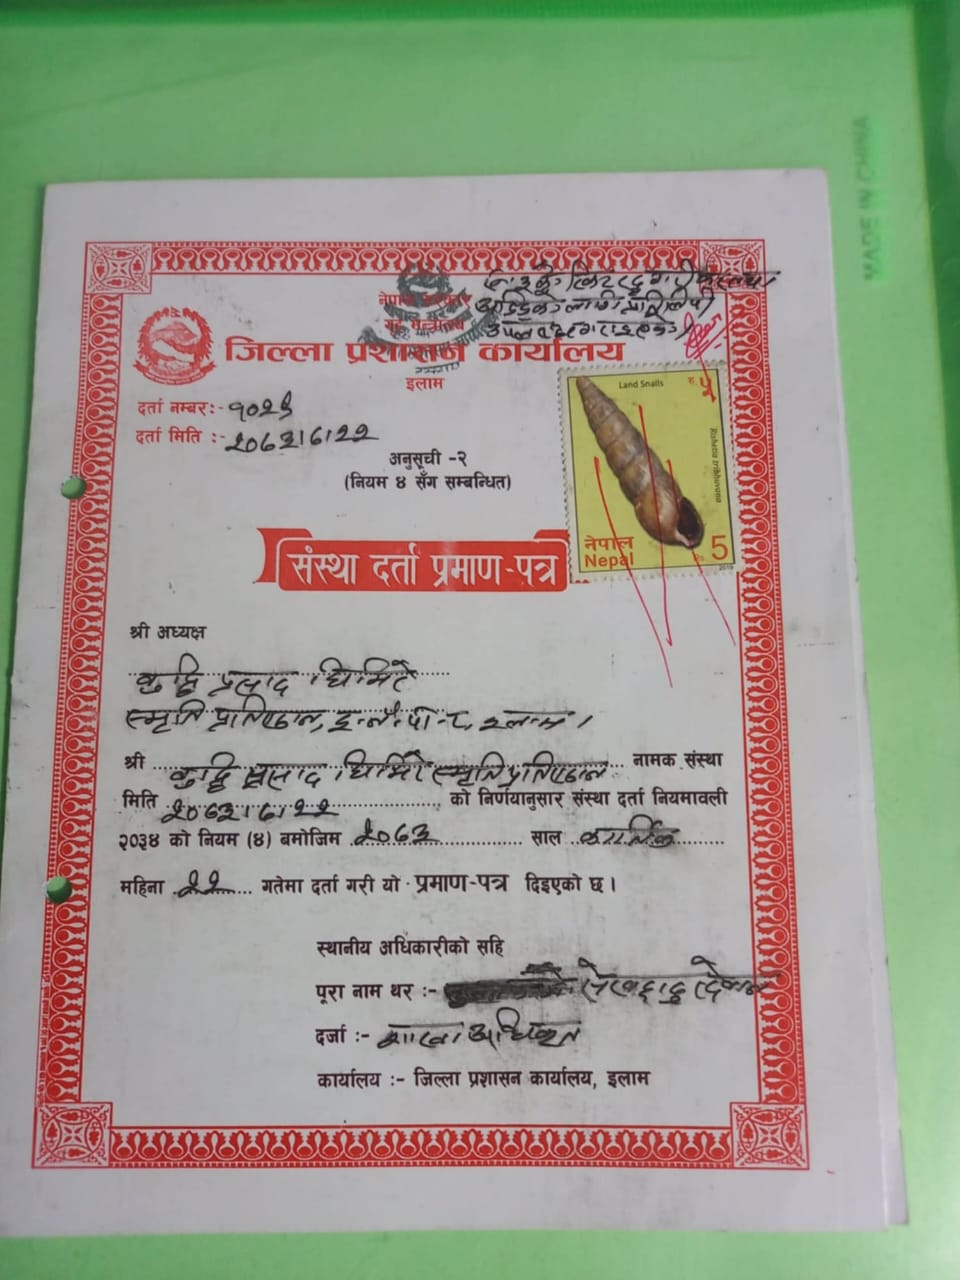 नेपाल सरकार
गृह मन्त्रालय
जिल्ला प्रशासन कार्यालय
इलाम
दर्ता नम्बर:- १०२९
दर्ता मिति :- २०६३।७।२२
अनुसूची -२
(नियम ४ सँग सम्बन्धित)
Land Snails
रु. ५
नेपाल
Nepal
Rs. 5
2019
संस्था दर्ता प्रमाण-पत्र
श्री अध्यक्ष
बुद्धि प्रसाद घिमिरे
स्मृति प्रतिष्ठान, इ.न.पा.
श्री बुद्धि प्रसाद घिमिरे स्मृति प्रतिष्ठान नामक संस्था
मिति २०६३।७।२२ को निर्णयानुसार संस्था दर्ता नियमावली
२०३४ को नियम (४) बमोजिम २०६३ साल कार्तिक
महिना २२ गतेमा दर्ता गरी यो प्रमाण-पत्र दिइएको छ।
स्थानीय अधिकारीको सहि
पूरा नाम थर :-
दर्जा :- शाखा अधिकृत
कार्यालय :- जिल्ला प्रशासन कार्यालय, इलाम
MADE IN CHINA